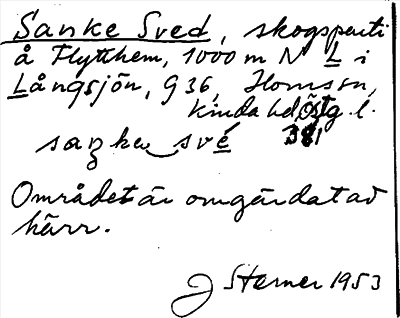 Sanke Sved, skogsparti
å Flytthem, 1000 m N L i
Långsjön, G 36, Homsn,
Kinda hd, Östg. l.
381
sanke své
Området är omgärdat av
härr.
J Sterner 1953